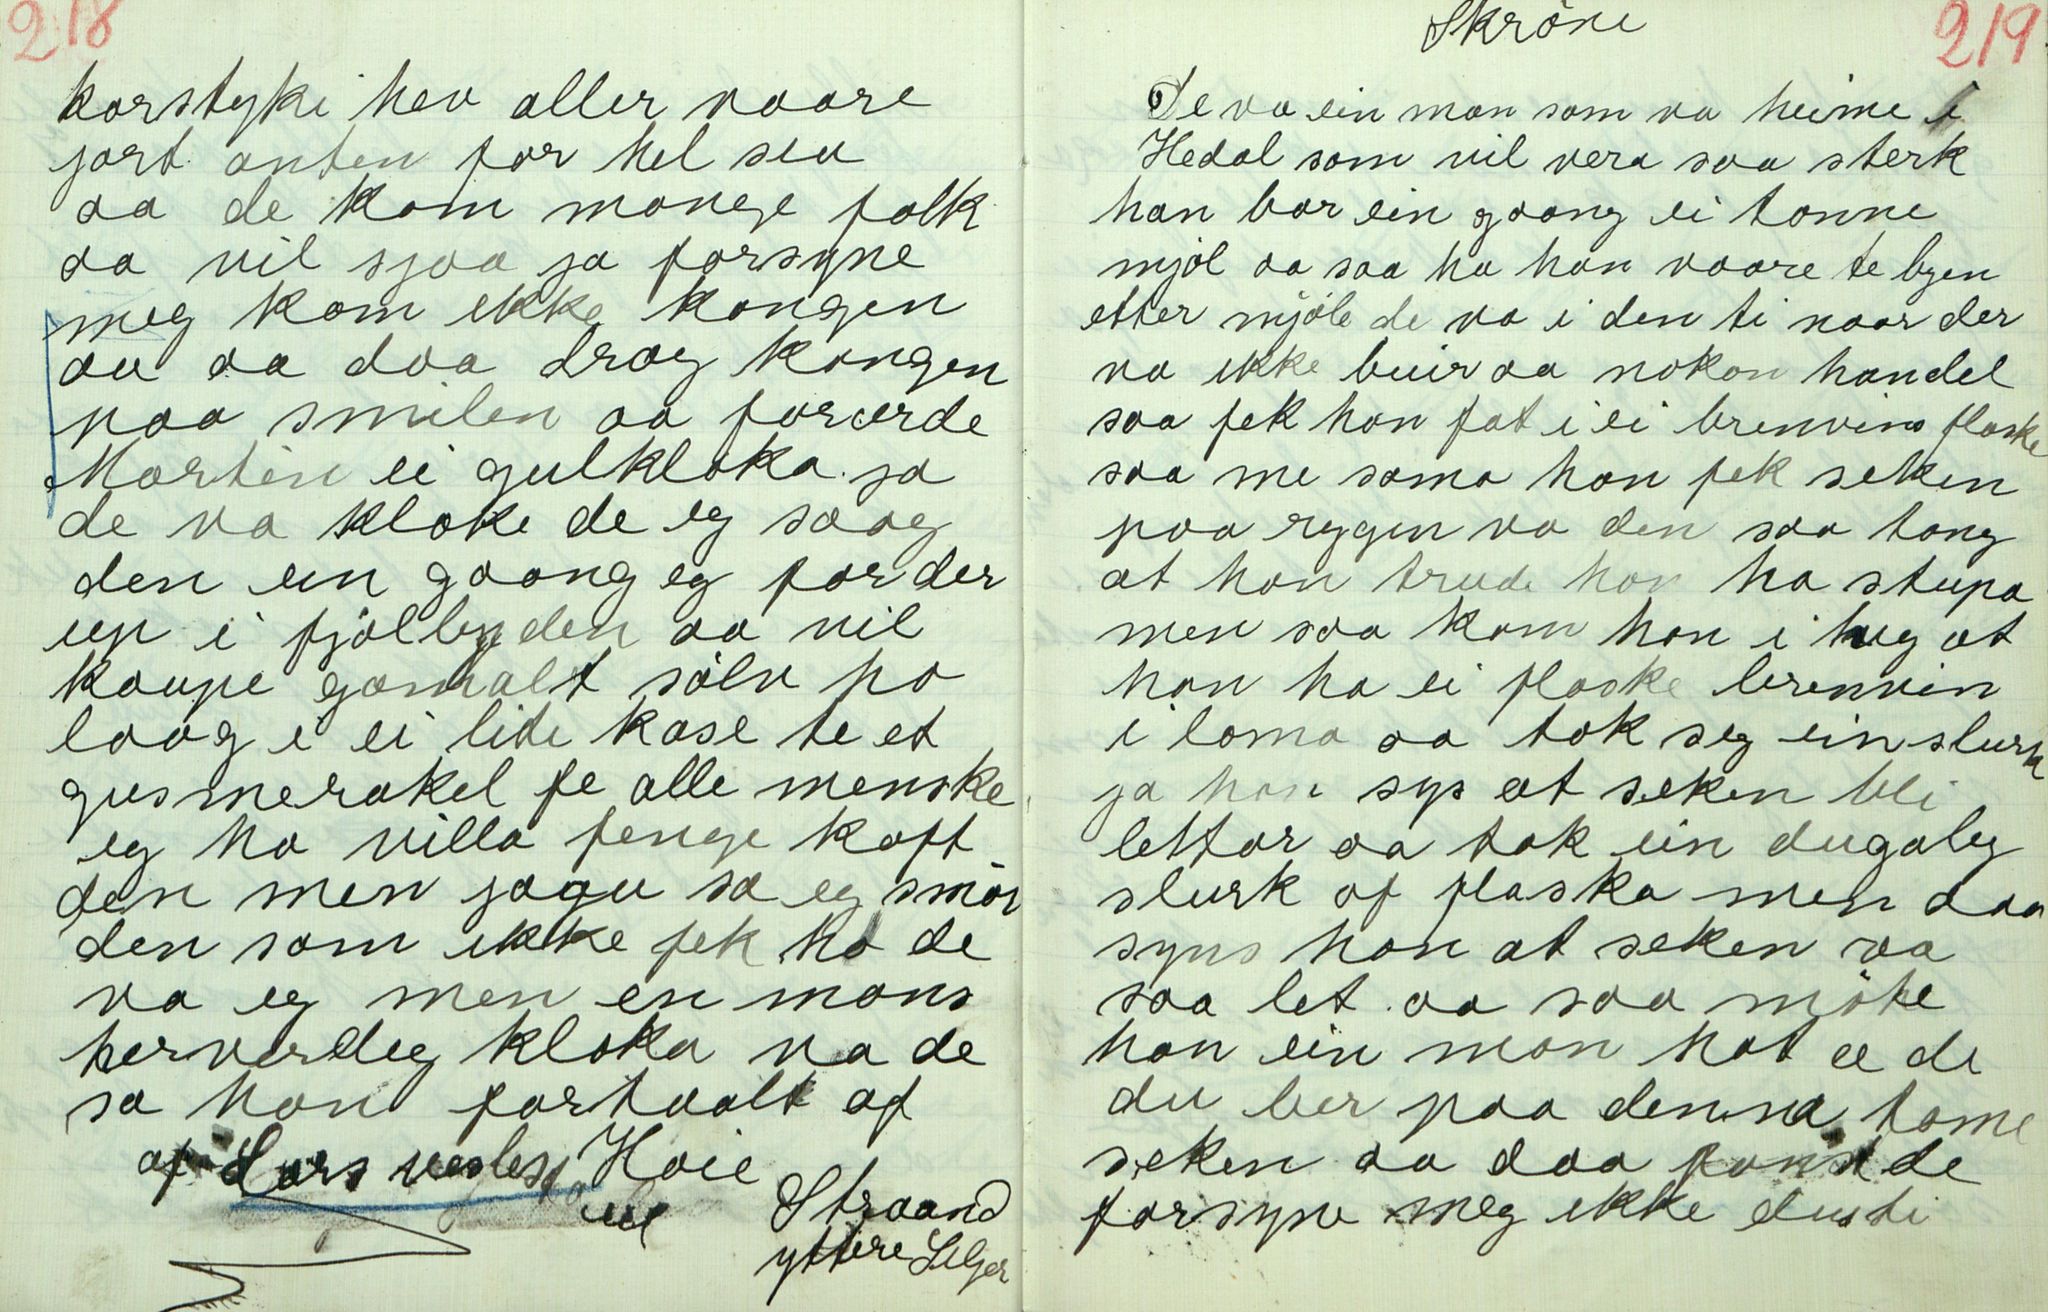 218
korstyki hev aller vaare
jort anten for hel seu
aa de kom mange folk
aa vil sjaa ja forsyne
meg kom ikke kongen
au aa daa drog kongen
paa smilen aa forærde
Mortin ei gulkloka ja
de va kloke de eg saag
den ein gaang eg for der
up i fjølbygden aa vil
kaupe gamalt sølv ho
laag i ei liti kase te et
gusmerakel fe alle menske
eg ha villa fenge kaft
den men jagu sa eg smør
den som ikke fek ho de
va eg men en mons
herverdeg kloka va de
sa han fortaalt af
af Lars Hoie
Straand
yttre Seljor
219
Skrøne
De va ein man som va heime i
Hedal som vil vera saa sterk
han bar ein gaang ei tonne
mjøl aa saa ha han vaare te byen
etter mjøle de va i den ti naar der
va ikke buir aa nokon handel
saa fek han fat i ei brenvins flaske
saa me sama han fek seken
paa rygen va den saa tong
at han trude han ha stupa
men saa kom han i hug at
han ha ei flaske brenvin
i loma aa tok seg ein slurk
ja han sys at seken bli
lettar aa tok ein dugaleg
slurk af flaska men daa
syns han at seken va
saa let aa saa møte
han ein man hot æ de
du ber paa denna tome
seken aa daa fans de
forsyne meg ikke dusti